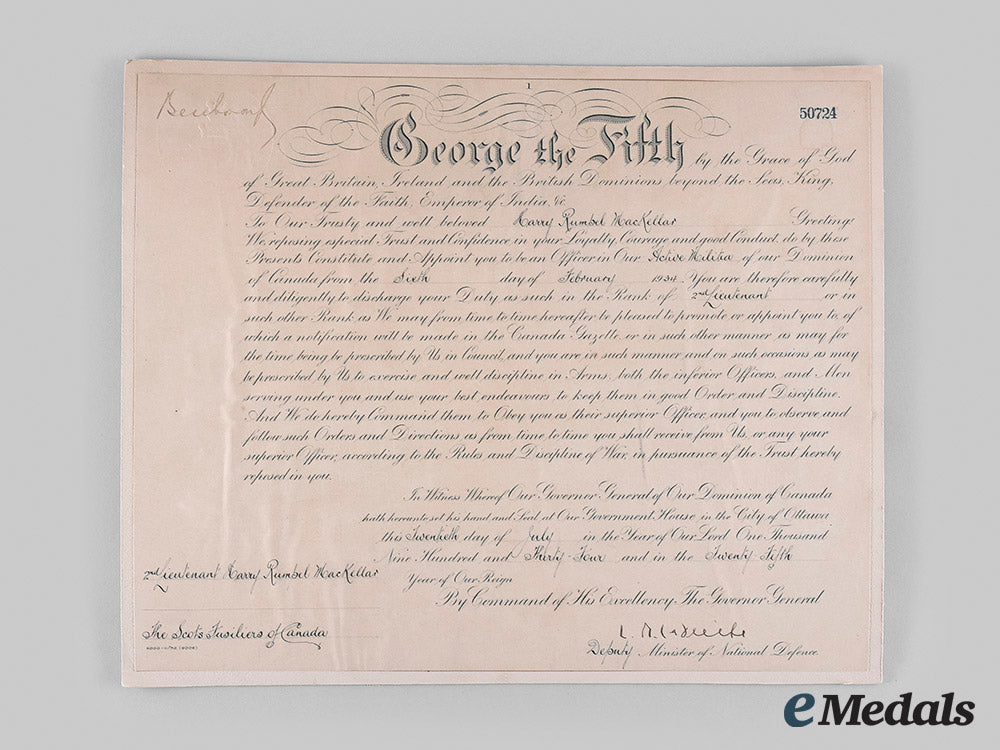 1
50724
George the Fifth by the Grace of God
of Great Britain, Ireland and the British Dominions beyond the Seas, King,
Defender of the Faith, Emperor of India, &c.
To Our Trusty and well beloved Harry Rumbel MacKellar Greeting:
We, reposing especial Trust and Confidence in your Loyalty, Courage and good Conduct, do by these
Presents Constitute and Appoint you to be an Officer in Our Active Militia of our Dominion
of Canada from the Sixth day of February 1934. You are therefore carefully
and diligently to discharge your Duty as such in the Rank of 2nd Lieutenant or in
such other Rank as We may from time to time hereafter be pleased to promote or appoint you to, of
which a notification will be made in the Canada Gazette, or in such other manner as may for
the time being be prescribed by Us in Council, and you are in such manner and on such occasions as may
be prescribed by Us, to exercise and well discipline in Arms, both the inferior Officers, and Men
serving under you and use your best endeavours to keep them in good Order and Discipline.
And We do hereby Command them to Obey you as their superior Officer, and you to observe and
follow such Orders and Directions as from time to time you shall receive from Us, or any your
superior Officer, according to the Rules and Discipline of War, in pursuance of the Trust hereby
reposed in you.
In Witness Whereof Our Governor General of Our Dominion of Canada
hath hereunto set his hand and Seal at Our Government House, in the City of Ottawa
this Twentieth day of July in the Year of Our Lord One Thousand
Nine Hundred and Thirty-Four and in the Twenty-Fifth
Year of Our Reign
By Command of His Excellency, The Governor General
Deputy Minister of National Defence
2nd Lieutenant Harry Rumbel MacKellar
The Scots Fusiliers of Canada
eMedals